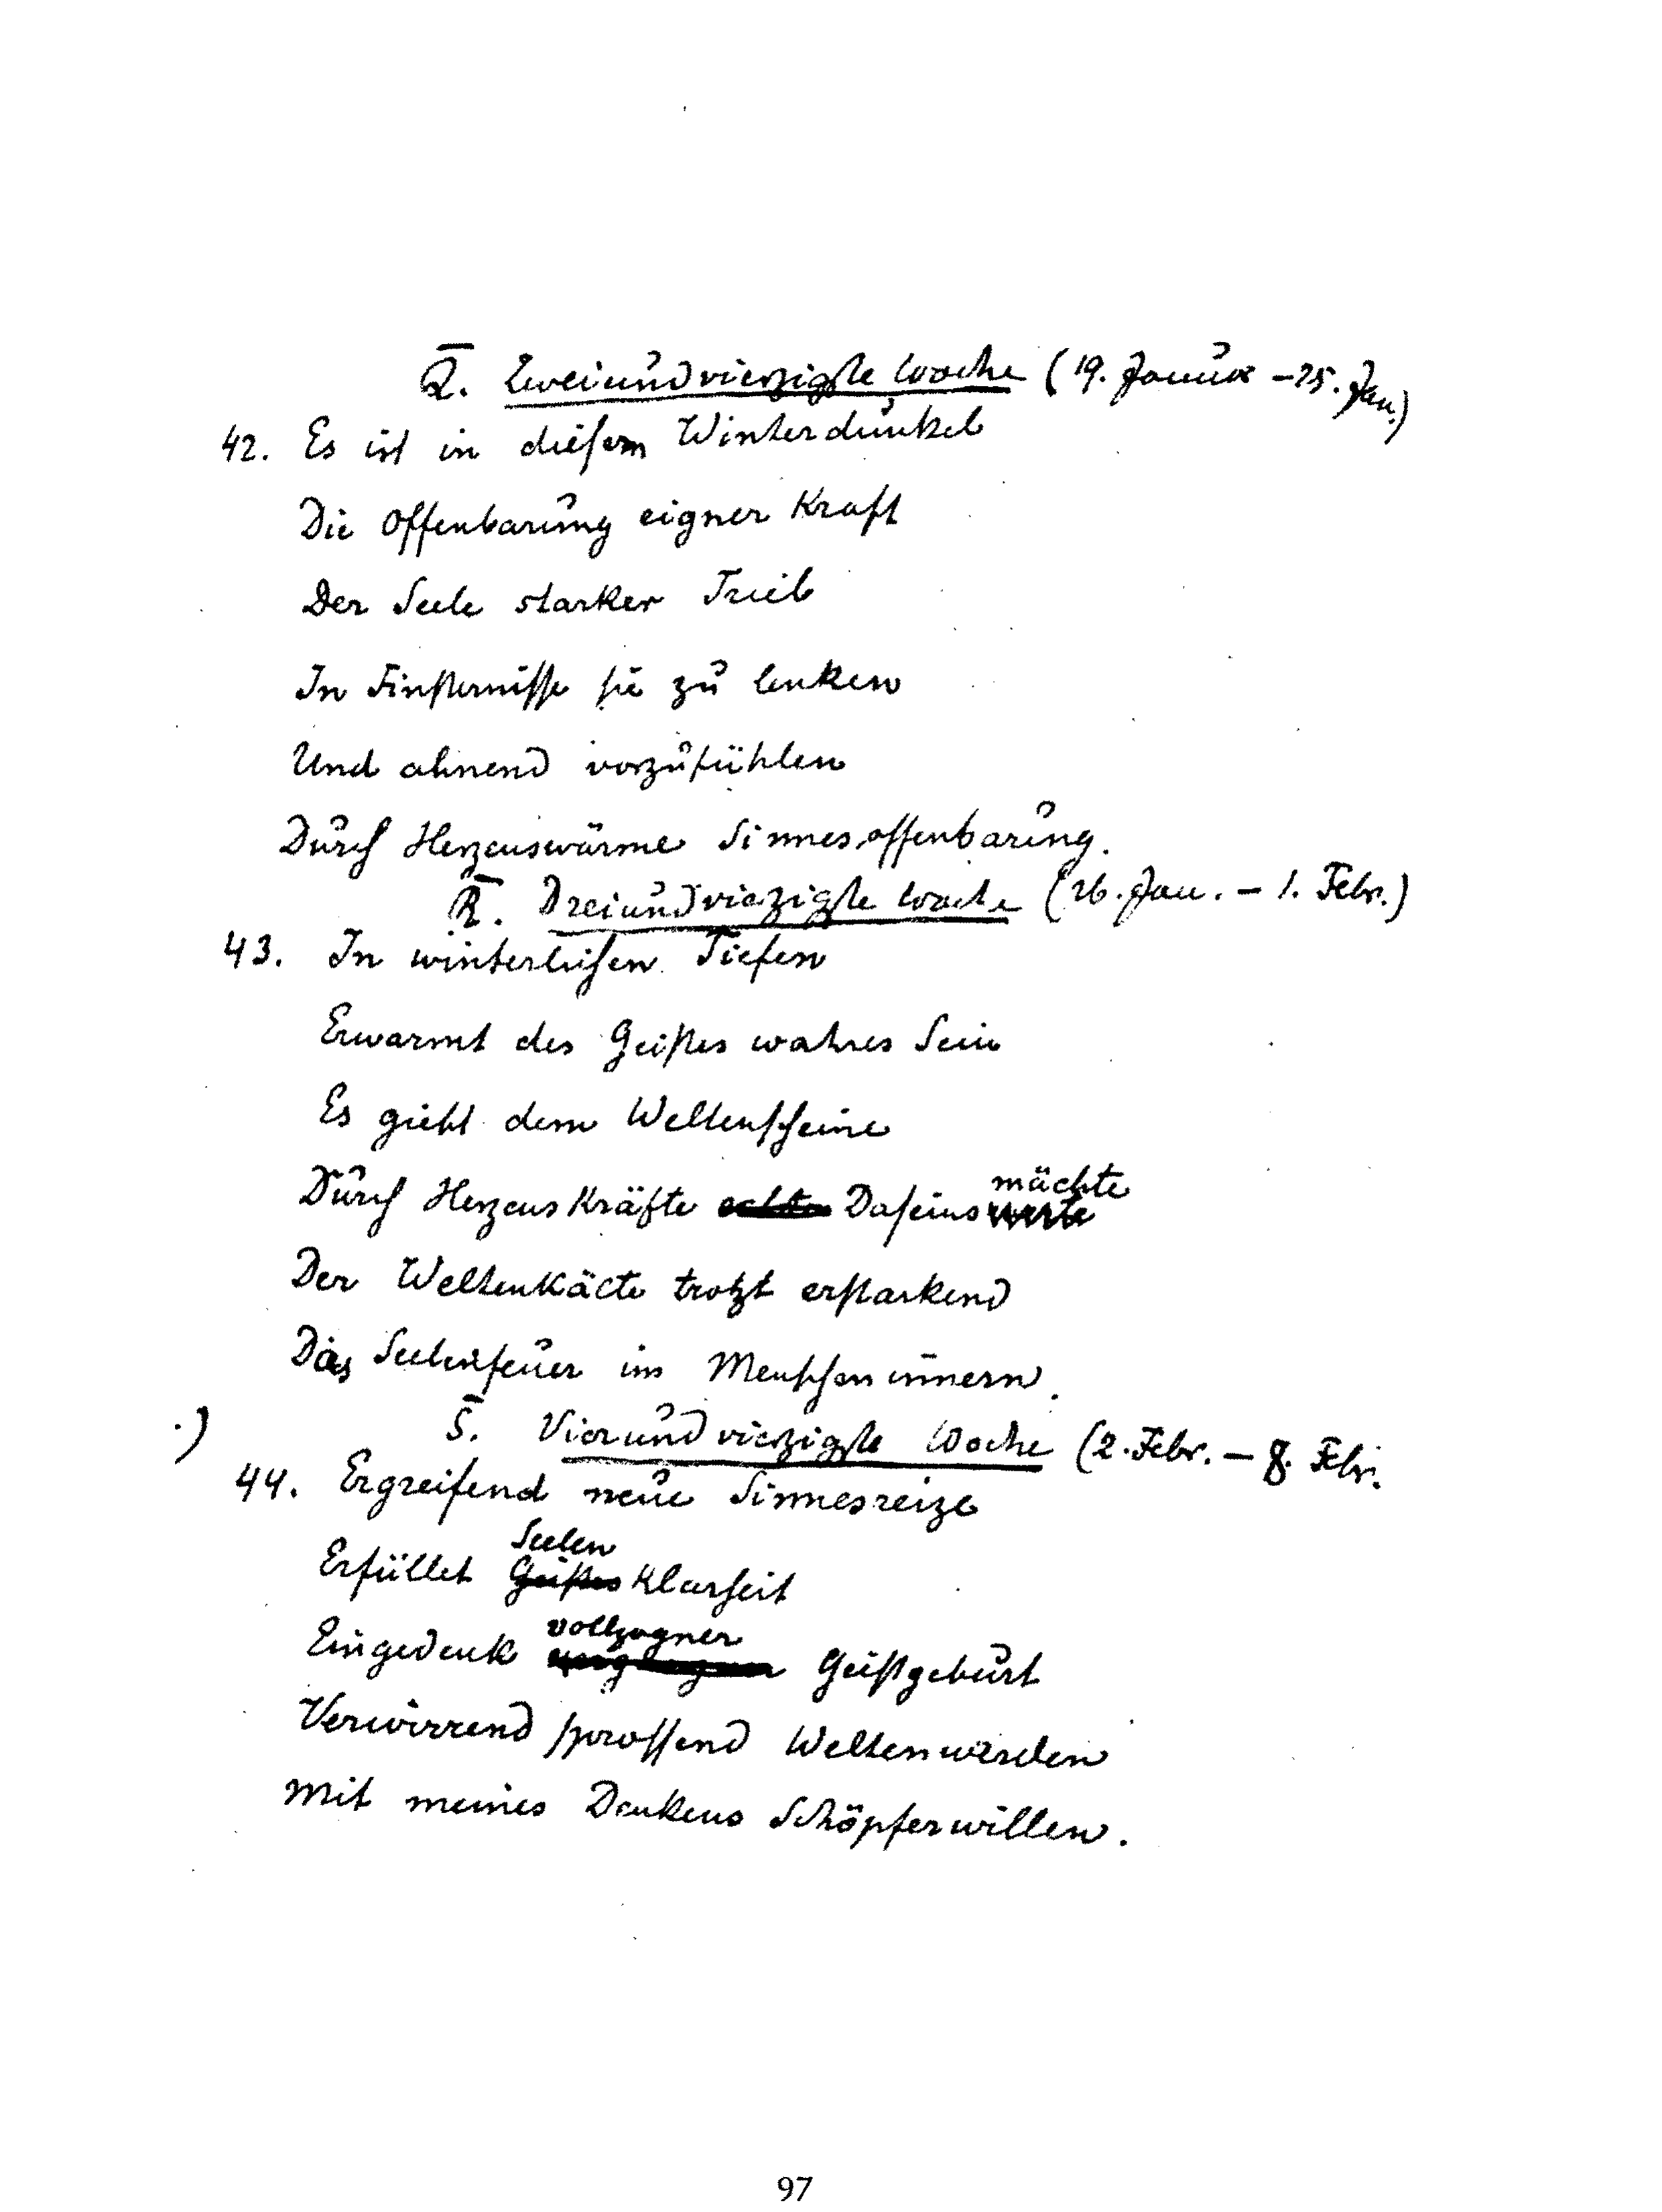 Q̅. Zweiundvierzigste Woche (19. Januar – 25. Jan.)
42. Es ist in diesem Winterdunkel
Die Offenbarung eigner Kraft
Der Seele starker Trieb
In Finsternisse sie zu lenken
Und ahnend vorzufühlen
Durch Herzenswärme Sinnesoffenbarung.
R̅. Dreiundvierzigste Woche (26. Jan. – 1. Febr.)
43. In winterlichen Tiefen
Erwarmt des Geistes wahres Sein
Es giebt dem Weltenscheine
mächte
Durch Herzenskräfte echte Daseinswerte
Der Weltenkälte trotzt erstarkend
Das Seelenfeuer im Menscheninnern.
·) S̅. Vierundvierzigste Woche (2. Febr. – 8. Febr.
44. Ergreifend neue Sinnesreize
Seelen
Erfüllet Geistes Klarheit
vollzogner
Eingedenk Geistgeburt
Verwirrend sprossend Weltenwerden
Mit meines Denkens Schöpferwillen.
97